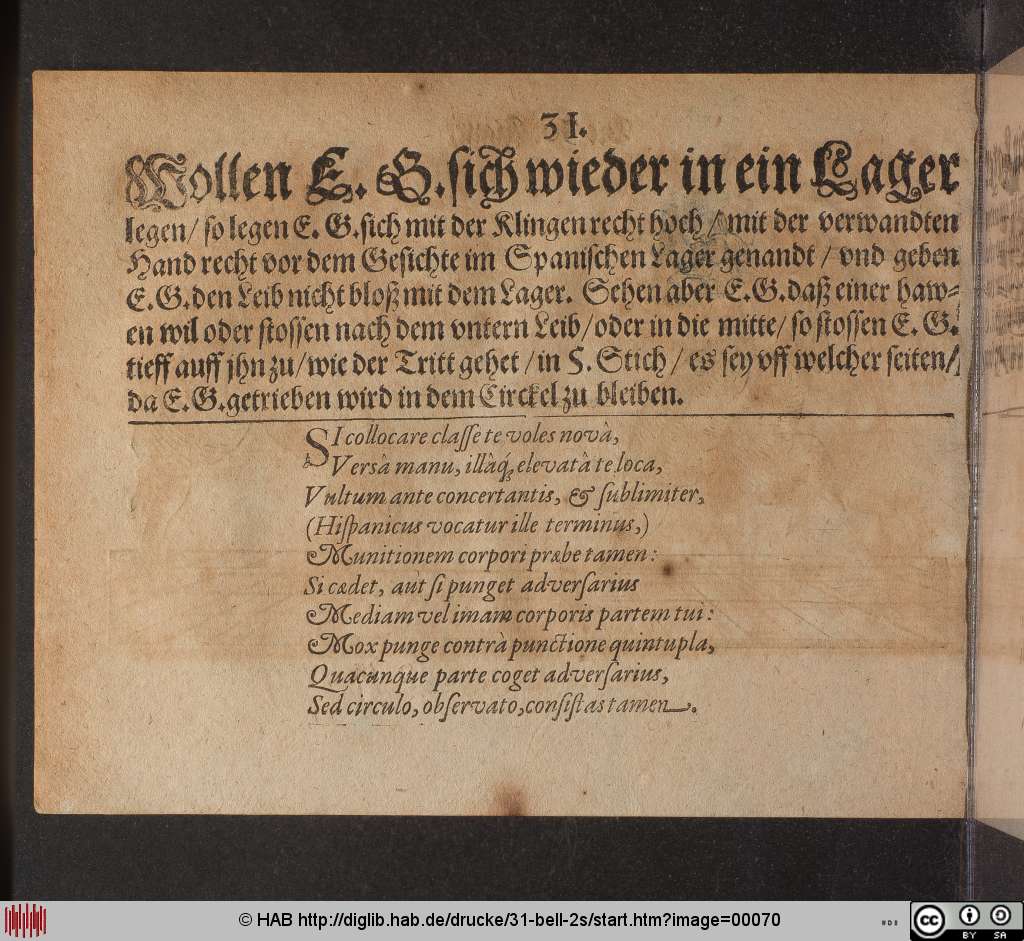 31.
Wollen E. G. sich wieder in ein Lager
legen / so legen E. G. sich mit der Klingen recht hoch / mit der verwandten
Hand recht vor dem Gesichte im Spanischen Lager genandt / vnd geben
E. G. den Leib nicht bloß mit dem Lager. Sehen aber E. G. daß einer haw-
en wil oder stossen nach dem vntern Leib / oder in die mitte / so stossen E. G.
tieff auff jhn zu / wie der Tritt gehet / in 5. Stich / es sey vff welcher seiten /
da E. G. getrieben wird in dem Circkel zu bleiben.
SI collocare classe te voles novâ,
Versâ manu, illâq́; elevatâ te loca,
Vultum ante concertantis, & sublimiter,
(Hispanicus vocatur ille terminus,)
Munitionem corpori præbe tamen:
Si cædet, aut si punget adversarius
Mediam vel imam corporis partem tui:
Mox punge contrà punctione quintupla,
Quacunque parte coget adversarius,
Sed circulo, observato, consistas tamen.
© HAB http://diglib.hab.de/drucke/31-bell-2s/start.htm?image=00070
cc BY SA